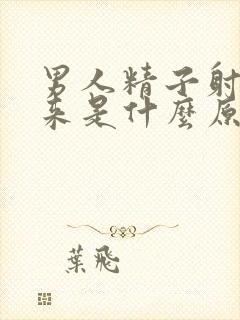 男人精子射
来是什麼原
葉飛